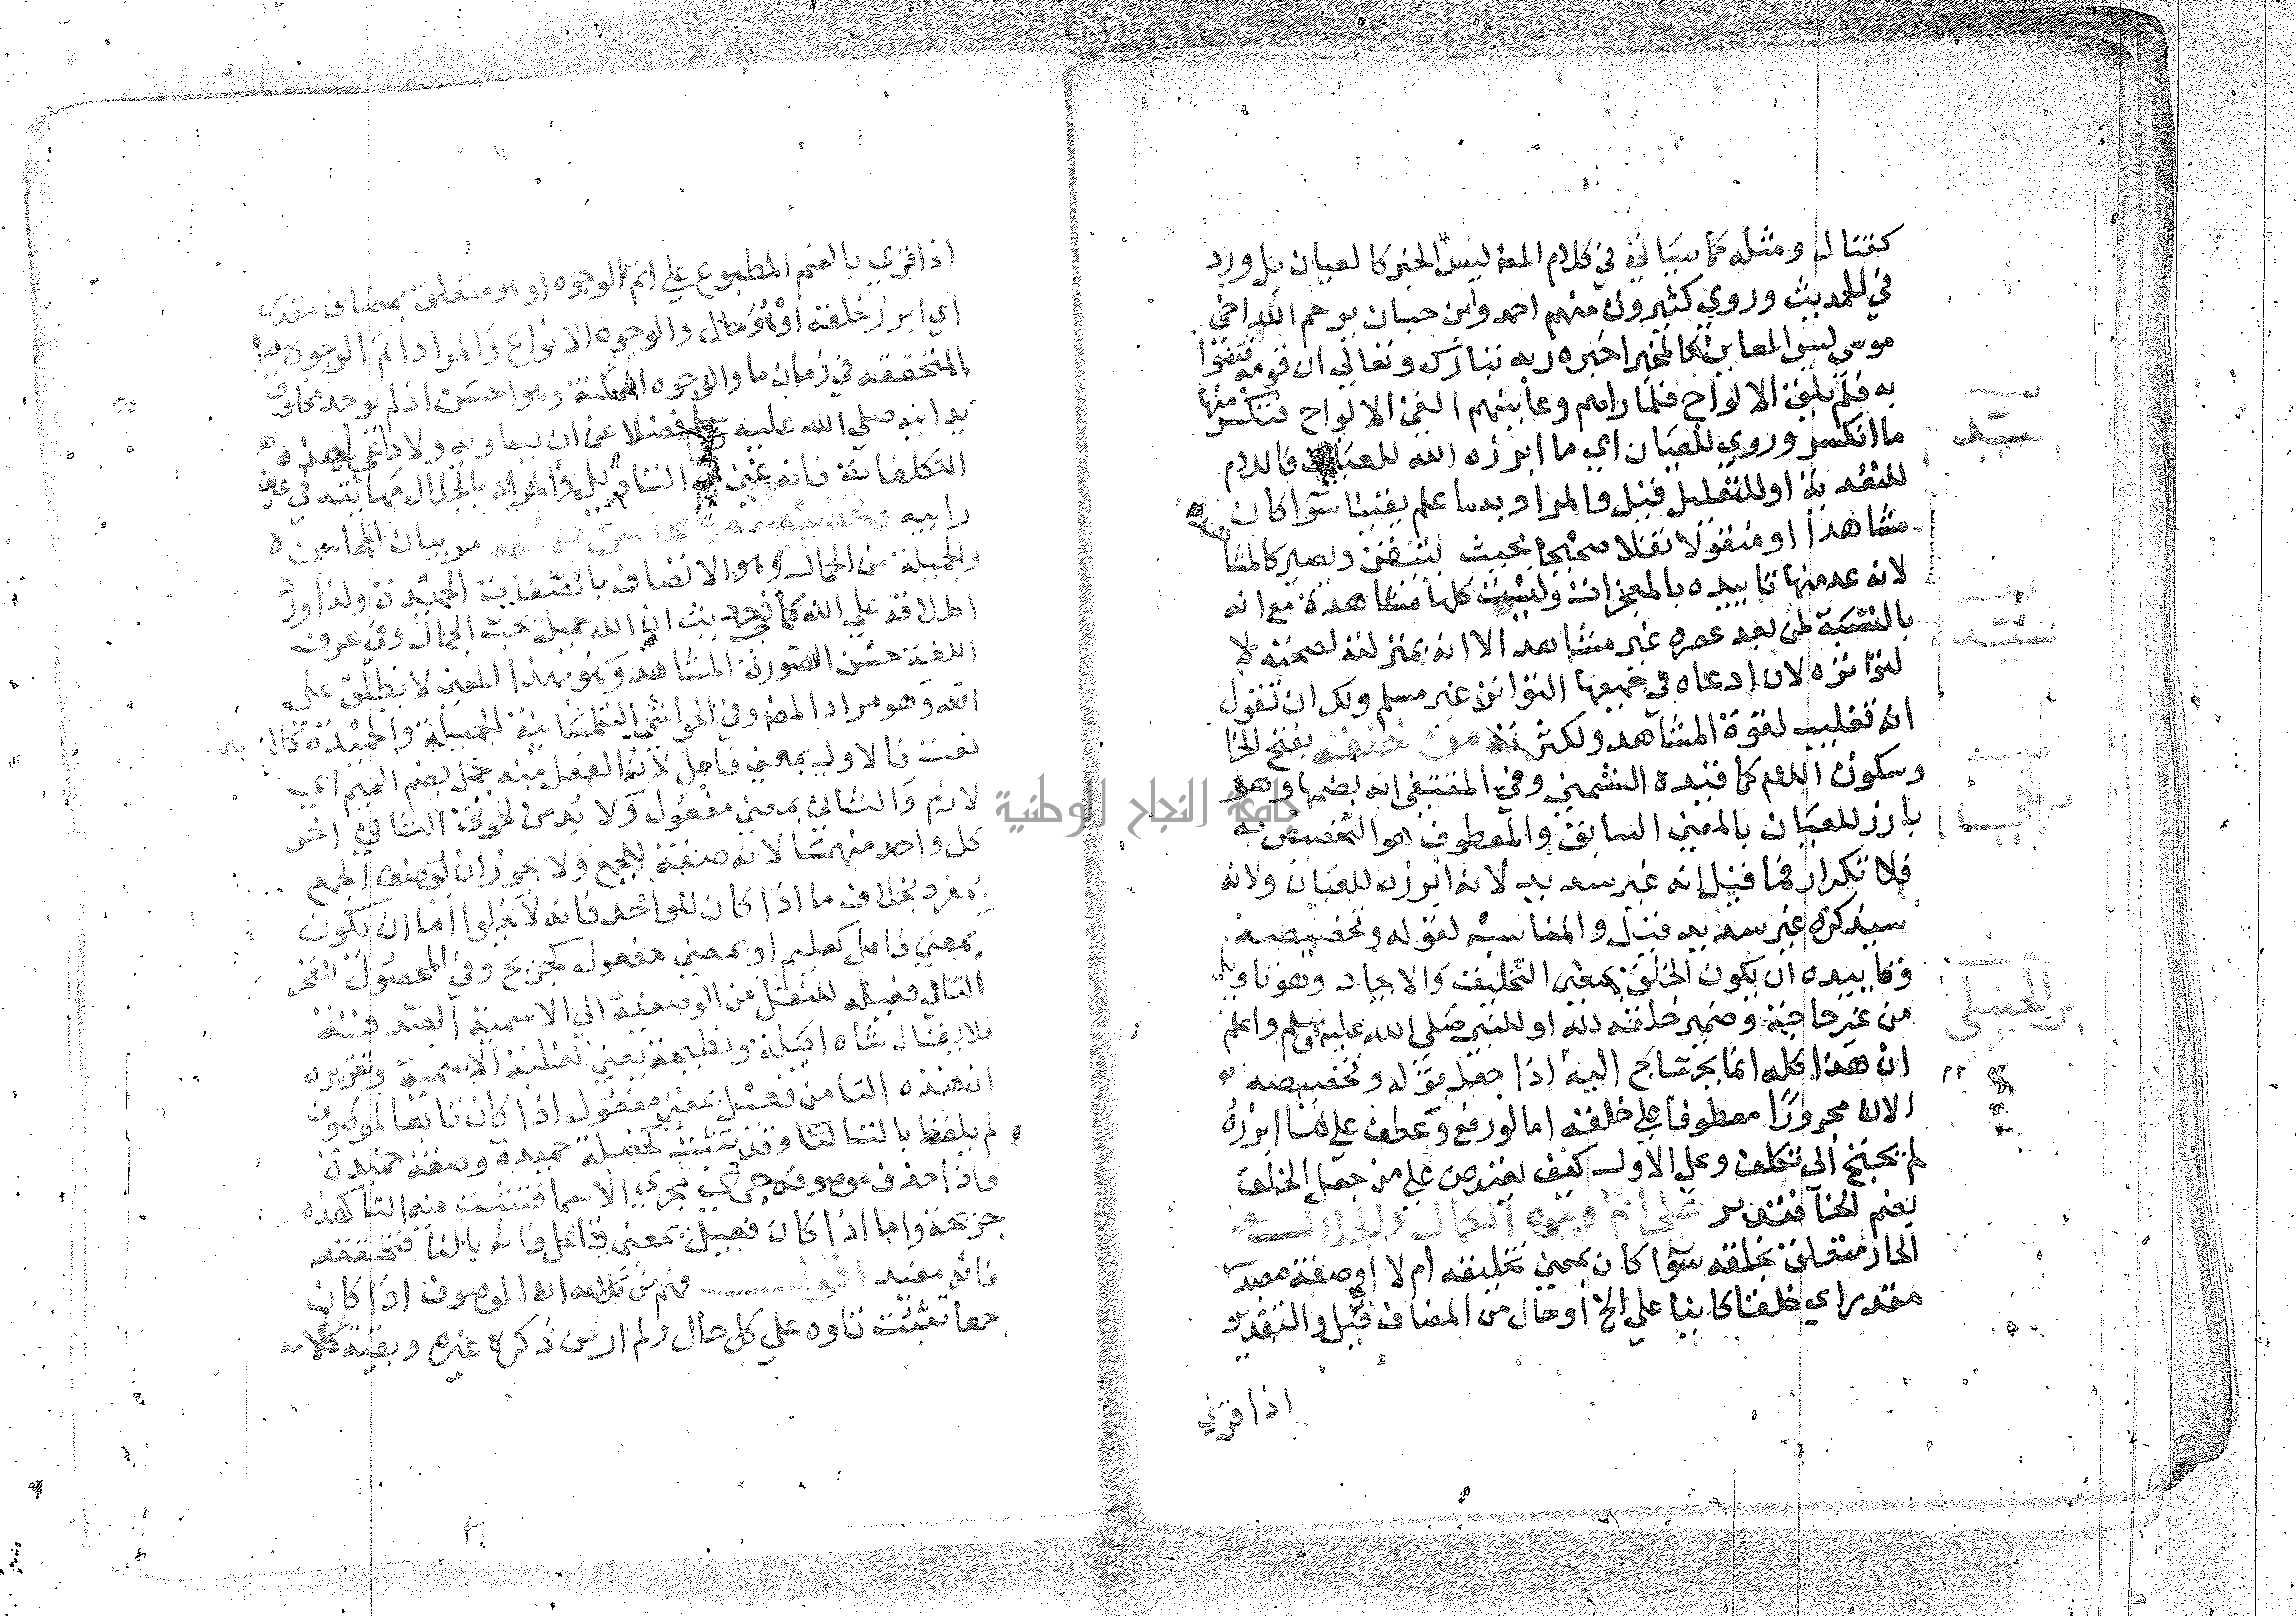 كقتال ومثله مما سيأتي في كلام المص ليس الخبر كالعيان بل ورد
في الحديث وروي كثيرون منهم احمد وابن حبان يرحم الله اخي
موسى ليس المعاين كالمخبر اخبره ربه تبارك وتعالي ان قومه فتنوا
به فلم يلق الالواح فلما راهم وعاينهم القي الالواح فتكسر منها
ما انكسر وروي للعيان اي ما ابرزه الله للعيان فاللام
للتعدية او للتعليل قيل والمراد بما علم يقينا سوآ كان
مشاهدا او منقولا نقلا صحيحا بحيث يتيقن ويصير كالمشا
لانه عد منها تاييده بالمعجزات وليست كلها مشاهدة مع انه
بالنسبة لمن بعد عصره غير مشاهد الا انه بمنزلته لصحته لا
لتواتره لان ادعاه في جميعها التواتر غير مسلم ولك ان تقول
انه تغليب لقوة المشاهد ولكثرته من خلقه بفتح الخا
وسكون اللام كما قيده الشمني وفي المقتفي انه بضمها وهو
بارز للعيان بالمعني السابق والمعطوف هو التخصيص به
فلا تكرار فما قيل انه غير سديد لانه ابرزه للعيان ولانه
سيذكره غير سديد قيل والمناسب لقوله وتخصيصه
وتاييده ان يكون الخلق بمعني التخليق والايجاد وهو تاويل
من غير حاجة وضمير خلقه لله او للنبي صلى الله عليه وسلم واعلم
ان هذا كله انما يحتاج اليه اذا جعل قوله وتخصيصه
الان مجرورا معطوفا علي خلقه اما لو رفع وعطف علي ما ابرزه
لم يحتج الي تكلف وعلي الاول كيف يعترض علي من جعل الخلق
بضم الخآ فتدبر على اتم وجوه الكمال والجلال
الجار متعلق بخلقه سوآ كان بمعني تخليقه ام لا او صفة مصدر
مقدر اي خلقا كاينا علي الخ او حال من المضاف قيل والتقدير
اذا قري
سيد
سيد
بن الحنبلي
اذا قري بالضم المطبوع علي اتم الوجوه او هو متعلق بمضاف مقدر
اي ابرز خلقه او هو حال والوجوه الانواع والمراد اتم الوجوه
المتحققة في زمان ما والوجوه الممكنة وهو احسن اذ لم يوجد مخلوق
يدانيه صلي الله عليه وسلم فضلا عن ان يساويه ولا داعي لهذه
التكلفات فانه غني عن التاويل والمراد بالجلال مهابته في عين
راييه وتخصيصه بالمحاسن الجميلة من بيان المحاسن
والجميلة من الجمال وهو الاتصاف بالصفات الحميدة ولذا ورد
اطلاقه علي الله كما في حديث ان الله جميل يحب الجمال وفي عرف
اللغة حسن الصورة المشاهد وهو بهذا المعني لا يطلق علي
الله وهو مراد المص وفي الحواشي التلمسانية الجميلة والحميدة كلاهما
نعت فالاول بمعني فاعل لان الفعل منه جمل بضم الميم اي
لازم والثاني بمعني مفعول ولا بد من لحوق الثاني اخر
كل واحد منهما لانه صفة للجمع ولا يجوز ان يوصف الجمع
بمفرد بخلاف ما اذا كان للواحد فانه لا يخلوا اما ان يكون
بمعني فاعل كعليم او بمعني مفعول كجريح وفي المحصول للفخر
التا في فعيله للنقل من الوصفية الي الاسمية الصرفة
فلا يقال شاه اكيلة ونطيحة يعني لغلبة الاسمية وتقريره
ان هذه التا من فعيل بمعني مفعول اذا كان تابعا لموصوف
لم يلفظ بالتا وقد تثبت كخصلة حميدة وصفة حميدة
فاذا حذف موصوفه جري مجري الاسما فتثبت فيه التا كهذه
جريحة واما اذا كان فعيل بمعني فاعل فانه بالتا فتحققه
فانه مفيد اقول فهم من كلامه ان الموصوف اذا كان
جمعا تثبت تاوه علي كل حال ولم ار من ذكره غيره وبقية كلامه
جامعة النجاح الوطنية